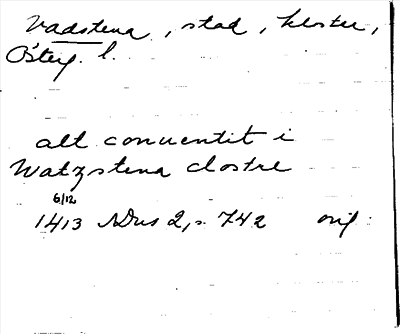 Vadstena, stad, kloster,
Österg. l.
alt conuentit i
Watzstena clostre
6/12
1413 SDns 2, s. 742 orig.